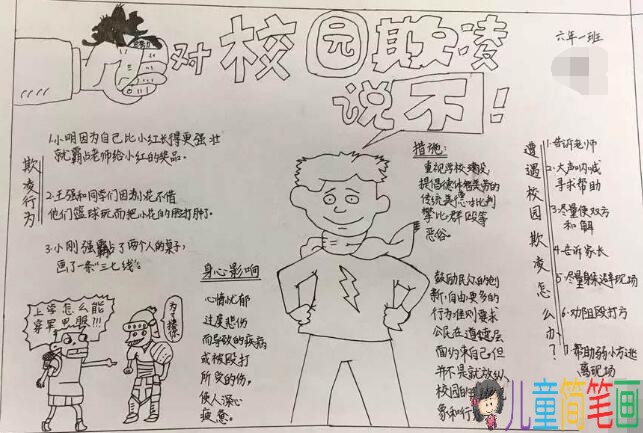 对校园欺凌
说不!
六年一班
欺凌行为
1.小明因为自己比小红长得更强壮
就霸占老师给小红的奖品。
2.王强和同学们因为小花不借
他们篮球玩而把小花的脸打肿了。
3.小刚强霸占了两个人的桌子,
画了一条“三七线”。
上学怎么能
穿
服!!!
身心影响
心情忧郁
过度悲伤
而导致的疾病
或被殴打
所受的伤,
使人深心
疲惫。
措施:
重视学校建设,
提倡德体智美劳的
传统美德
批判
攀比群殴等
恶俗。
鼓励民众的创
新·自由更多的
行为准则要求
公民在道德层
面约束自己,但
并不是就放纵
校园的
象和行
遭遇校园欺凌怎么办?
1.告诉老师
2.大声喊或
寻求帮助
3.尽量使双方
和解
4.告诉家长
5.尽量躲逃离现场
6.劝阻殴打方
7.帮助弱小方逃
离现场
儿童简笔画